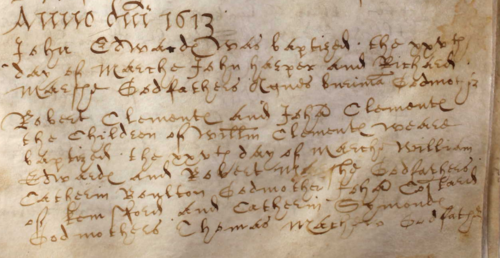 Anno dni 1613
John Edwards was baptized the xxvth
day of Marche John harper and Richard
Godfathers Agnes Godmother
Robert Clements and Johan Clements
the Children of Willm Clements weare
baptized the xxvth day of Marche William
Edwards and Robert the Godfathers
Catherin Boulton Godmother Johan
of kemsford and Catherin Symonds
Godmothers Thomas Godfather